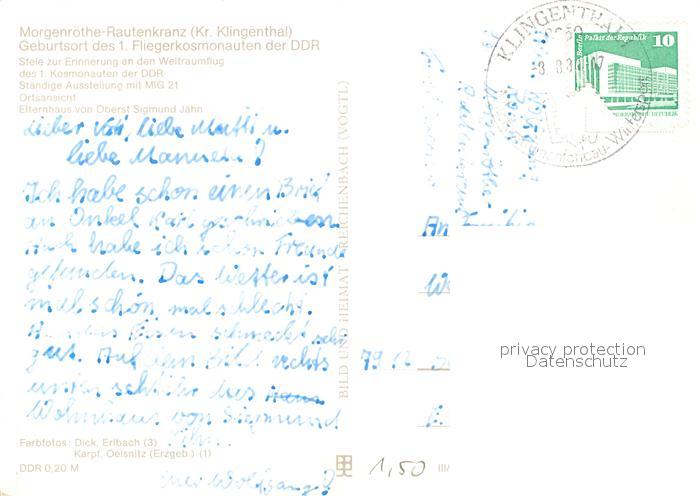 Morgenröthe-Rautenkranz (Kr. Klingenthal)
Geburtsort des 1. Fliegerkosmonauten der DDR
Stele zur Erinnerung an den Weltraumflug
des 1. Kosmonauten der DDR
Ständige Ausstellung mit MIG 21
Ortsansicht
Elternhaus von Oberst Sigmund Jähn
Lieber Vati, liebe Mutti u.
liebe Manuela!
Ich habe schon einen Brief
an Onkel Karl geschrieben
Auch habe ich schon Freunde
gefunden. Das Wetter ist
mal schön, mal schlecht.
Essen schmeckt sehr
gut. Auf dem Bild rechts
unten seht ihr das
Wohnhaus von Siegmund
Jähn.
Euer Wolfgang!
Farbfotos: Dick, Erlbach (3)
Karpf, Oelsnitz (Erzgeb.) (1)
DDR 0,20 M
BILD UND HEIMAT REICHENBACH (VOGTL)
1,50
III/
KLINGENTHAL
Berlin Palast der Republik
10
An Familie
privacy protection
Datenschutz